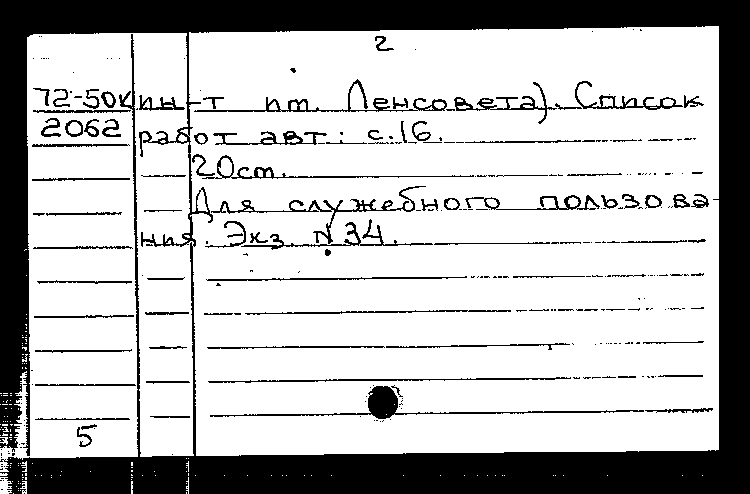 2
72-50к ин-т им. Ленсовета). Список
2062 работ авт: с.16.
20см.
Для служебного пользова-
ния. Экз. № 34.
5